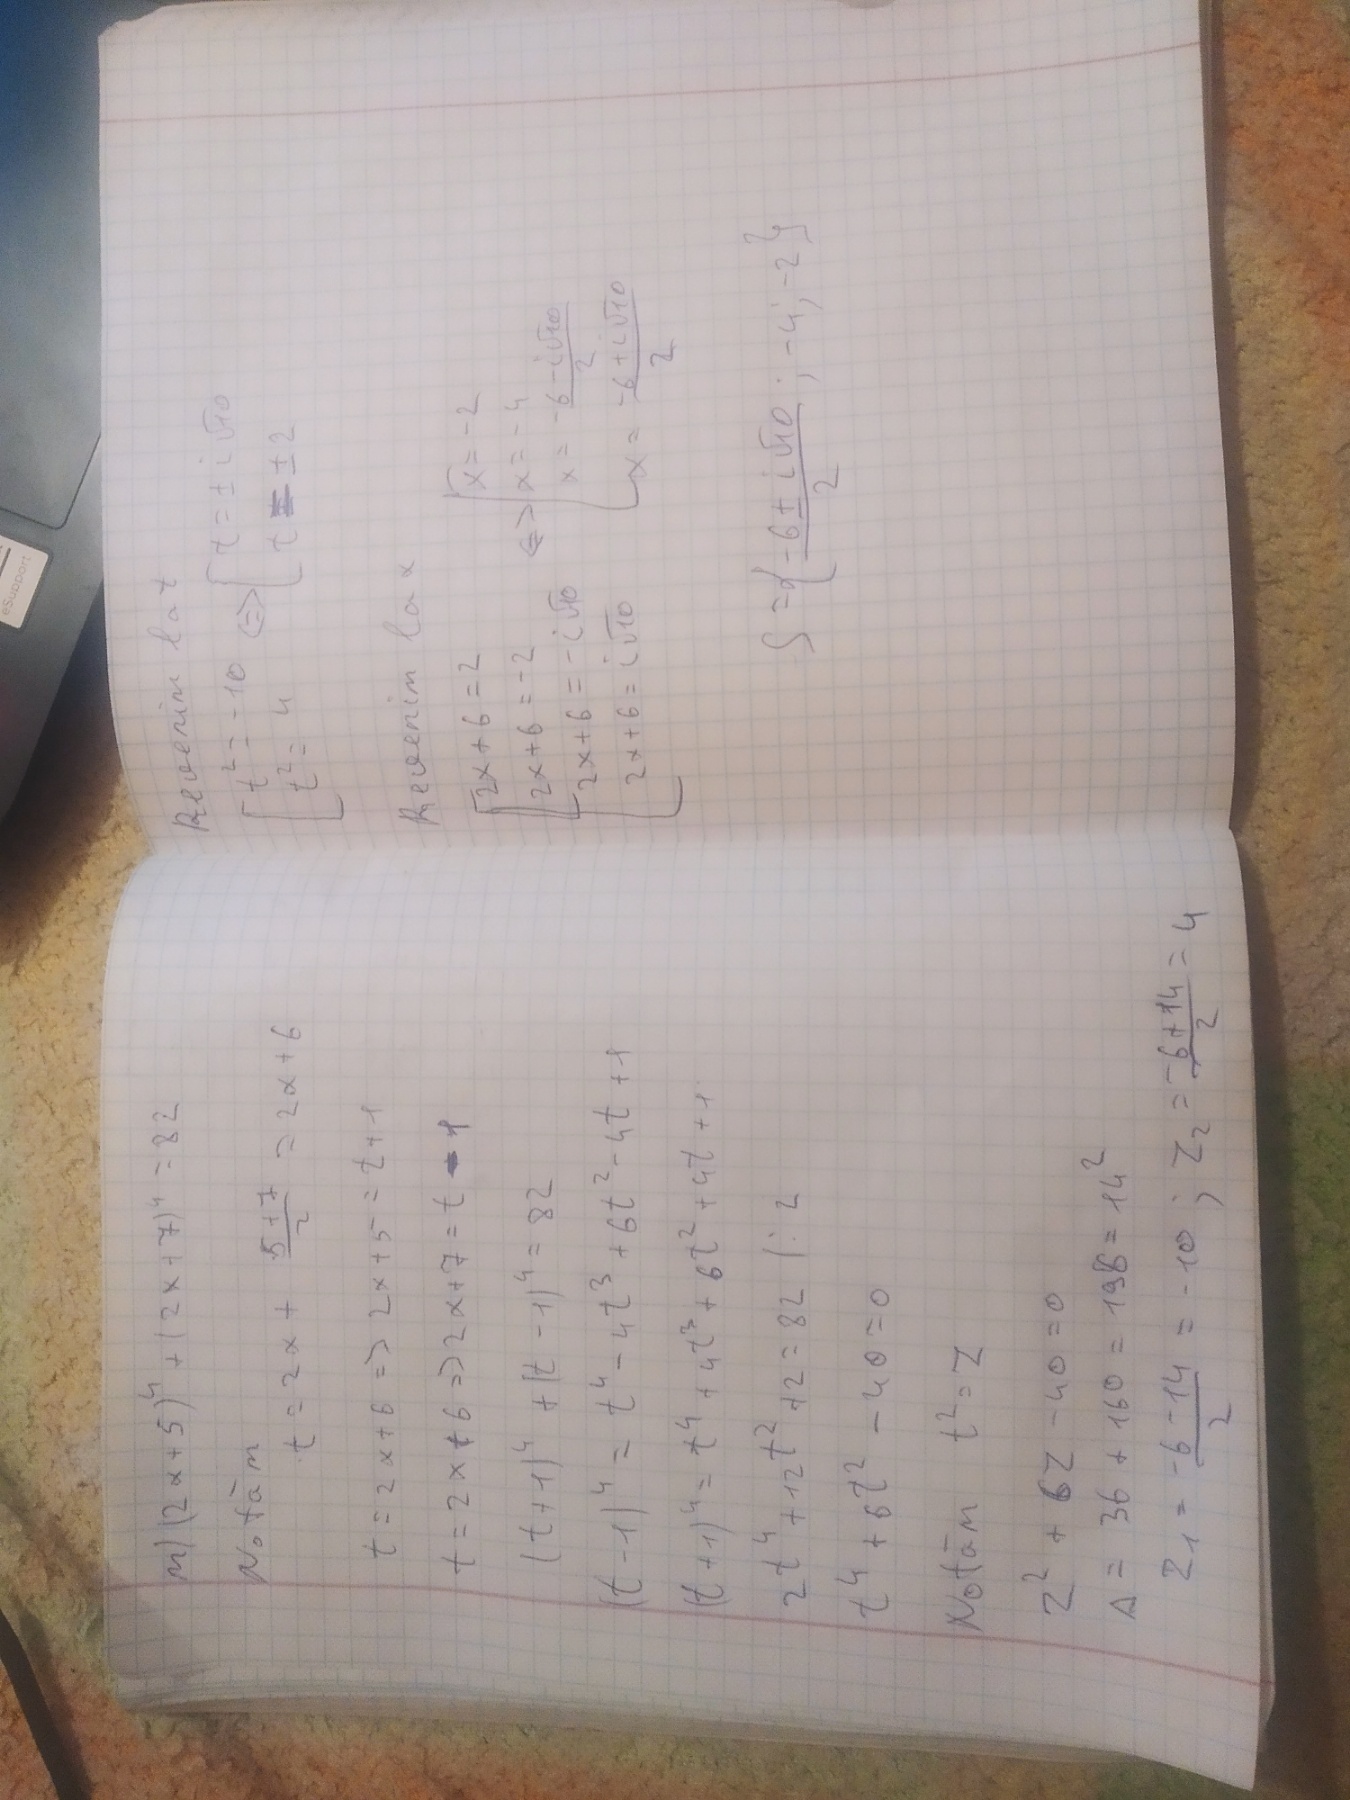 n) (2x+5)⁴ + (2x+7)⁴ = 82
Notăm
t = 2x + (5+7)/2 = 2x+6
t = 2x+6 => 2x+5 = t+1
t = 2x+6 => 2x+7 = t-1
(t+1)⁴ + (t-1)⁴ = 82
(t-1)⁴ = t⁴ - 4t³ + 6t² - 4t + 1
(t+1)⁴ = t⁴ + 4t³ + 6t² + 4t + 1
2t⁴ + 12t² + 2 = 82 |:2
t⁴ + 6t² - 40 = 0
Notăm t² = Z
Z² + 6Z - 40 = 0
Δ = 36 + 160 = 196 = 14²
Z₁ = (-6-14)/2 = -10 ; Z₂ = (-6+14)/2 = 4
Revenim la t
[t² = -10 <=> [t = ± i√10
[t² = 4 [t = ±2
Revenim la x
[2x+6 = 2 [x = -2
[2x+6 = -2 <=> [x = -4
[2x+6 = -i√10 [x = (-6-i√10)/2
[2x+6 = i√10 [x = (-6+i√10)/2
S = {(-6±i√10)/2 ; -4; -2}
eSupport